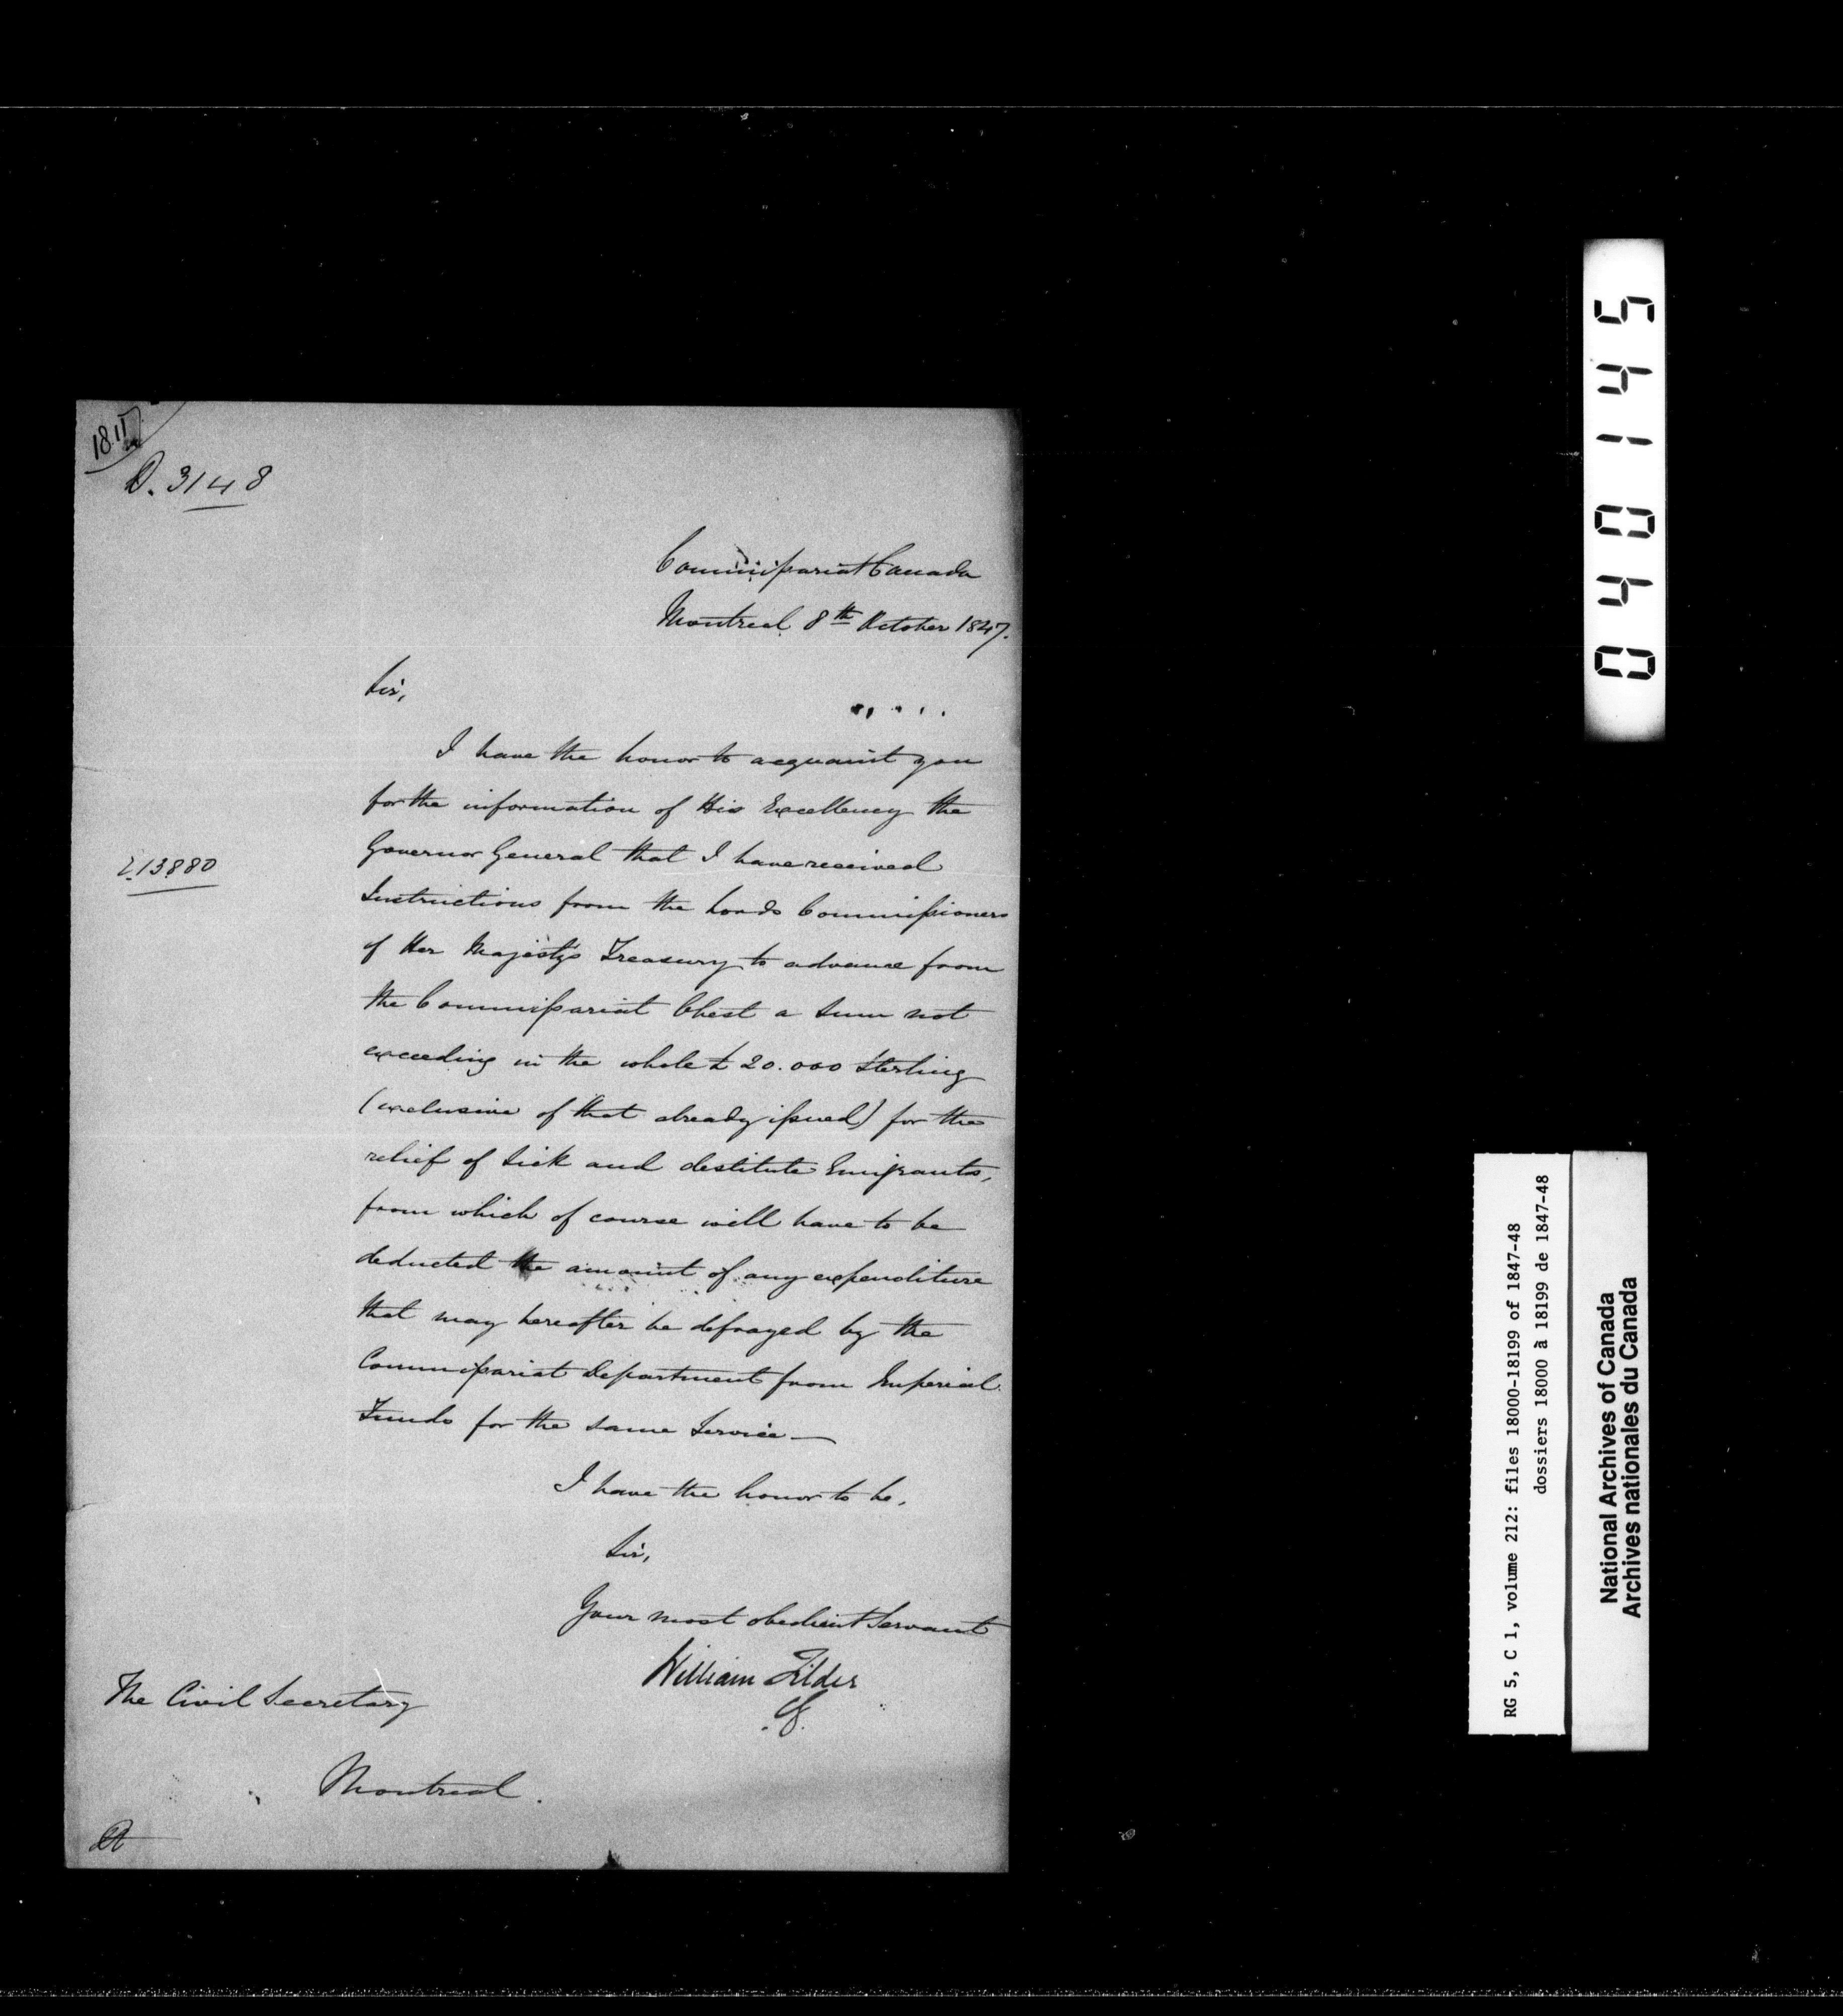 D. 3148
Commissariat Canada
Montreal 8th October 1847.
Sir,
I have the honor to acquaint you
for the information of His Excellency the
Governor General that I have received
Instructions from the Lords Commissioners
of Her Majesty's Treasury to advance from
the Commissariat Chest a sum not
exceeding in the whole £20.000 Sterling
(exclusive of that already issued) for the
relief of Sick and destitute Emigrants,
from which of course will have to be
deducted the amount of any expenditure
that may hereafter be defrayed by the
Commissariat Department from Imperial
Funds for the same Service —
I have the honor to be,
Sir,
Your most obedient Servant
William Filder
The Civil Secretary
Montreal.
13880
040145
RG 5, C 1, volume 212: files 18000-18199 of 1847-48
dossiers 18000 à 18199 de 1847-48
National Archives of Canada
Archives nationales du Canada